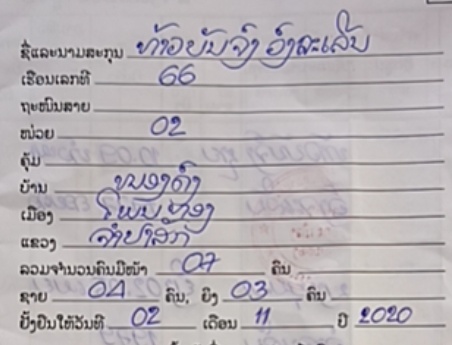 ຊື່ແລະນາມສະກຸນ ທ້າວ
ເຮືອນເລກທີ 66
ຖະໜົນສາຍ
ໜ່ວຍ 02
ຄຸ້ມ
ບ້ານ
ເມືອງ ໂພນທອງ
ແຂວງ ຈຳປາສັກ
ລວມຈຳນວນຄົນມີໜ້າ 07 ຄົນ
ຊາຍ 04 ຄົນ, ຍິງ 03 ຄົນ
ຢັ້ງຢືນໃຫ້ວັນທີ 02 ເດືອນ 11 ປີ 2020